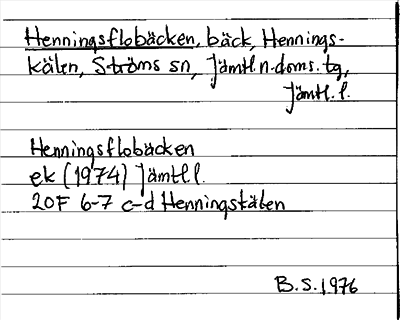 Henningsflobäcken, bäck, Hennings-
kälen, Ströms sn, Jämtl.n.doms.tg,
Jämtl.l.
Henningsflobäcken
ek (1974) Jämtl.l.
20F 6-7 c-d Henningskälen
B.S. 1976